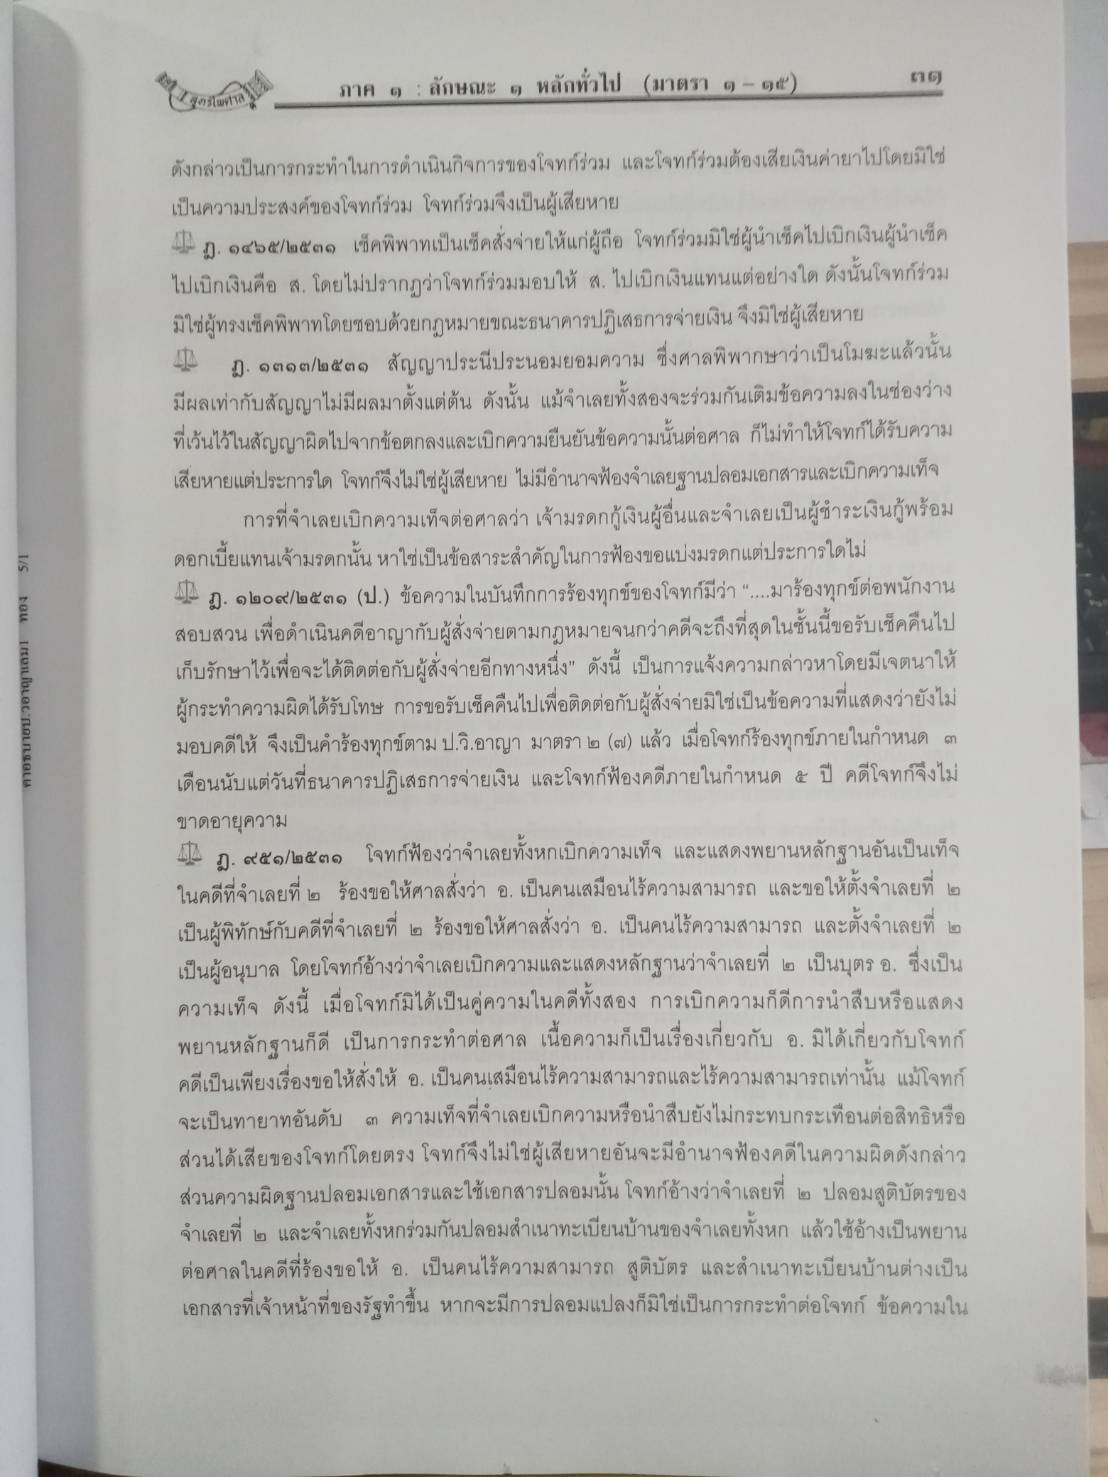 สูตรไพศาล
ภาค ๑ : ลักษณะ ๑ หลักทั่วไป (มาตรา ๑ - ๑๕)
๓๑
ดังกล่าวเป็นการกระทำในการดำเนินกิจการของโจทก์ร่วม และโจทก์ร่วมต้องเสียเงินค่ายาไปโดยมิใช่
เป็นความประสงค์ของโจทก์ร่วม โจทก์ร่วมจึงเป็นผู้เสียหาย
ฎ. ๑๔๖๕/๒๕๓๑ เช็คพิพาทเป็นเช็คสั่งจ่ายให้แก่ผู้ถือ โจทก์ร่วมมิใช่ผู้นำเช็คไปเบิกเงินผู้นำเช็ค
ไปเบิกเงินคือ ส. โดยไม่ปรากฏว่าโจทก์ร่วมมอบให้ ส. ไปเบิกเงินแทนแต่อย่างใด ดังนั้นโจทก์ร่วม
มิใช่ผู้ทรงเช็คพิพาทโดยชอบด้วยกฎหมายขณะธนาคารปฏิเสธการจ่ายเงิน จึงมิใช่ผู้เสียหาย
ฎ. ๑๓๑๓/๒๕๓๑ สัญญาประนีประนอมยอมความ ซึ่งศาลพิพากษาว่าเป็นโมฆะแล้วนั้น
มีผลเท่ากับสัญญาไม่มีผลมาตั้งแต่ต้น ดังนั้น แม้จำเลยทั้งสองจะร่วมกันเติมข้อความลงในช่องว่าง
ที่เว้นไว้ในสัญญาผิดไปจากข้อตกลงและเบิกความยืนยันข้อความนั้นต่อศาล ก็ไม่ทำให้โจทก์ได้รับความ
เสียหายแต่ประการใด โจทก์จึงไม่ใช่ผู้เสียหาย ไม่มีอำนาจฟ้องจำเลยฐานปลอมเอกสารและเบิกความเท็จ
การที่จำเลยเบิกความเท็จต่อศาลว่า เจ้ามรดกกู้เงินผู้อื่นและจำเลยเป็นผู้ชำระเงินกู้พร้อม
ดอกเบี้ยแทนเจ้ามรดกนั้น หาใช่เป็นข้อสาระสำคัญในการฟ้องขอแบ่งมรดกแต่ประการใดไม่
ฎ. ๑๒๐๙/๒๕๓๑ (ป.) ข้อความในบันทึกการร้องทุกข์ของโจทก์มีว่า “....มาร้องทุกข์ต่อพนักงาน
สอบสวน เพื่อดำเนินคดีอาญากับผู้สั่งจ่ายตามกฎหมายจนกว่าคดีจะถึงที่สุดในชั้นนี้ขอรับเช็คคืนไป
เก็บรักษาไว้เพื่อจะได้ติดต่อกับผู้สั่งจ่ายอีกทางหนึ่ง” ดังนี้ เป็นการแจ้งความกล่าวหาโดยมีเจตนาให้
ผู้กระทำความผิดได้รับโทษ การขอรับเช็คคืนไปเพื่อติดต่อกับผู้สั่งจ่ายมิใช่เป็นข้อความที่แสดงว่ายังไม่
มอบคดีให้ จึงเป็นคำร้องทุกข์ตาม ป.วิ.อาญา มาตรา ๒ (๗) แล้ว เมื่อโจทก์ร้องทุกข์ภายในกำหนด ๓
เดือนนับแต่วันที่ธนาคารปฏิเสธการจ่ายเงิน และโจทก์ฟ้องคดีภายในกำหนด ๕ ปี คดีโจทก์จึงไม่
ขาดอายุความ
ฎ. ๙๕๑/๒๕๓๑ โจทก์ฟ้องว่าจำเลยทั้งหกเบิกความเท็จ และแสดงพยานหลักฐานอันเป็นเท็จ
ในคดีที่จำเลยที่ ๒ ร้องขอให้ศาลสั่งว่า อ. เป็นคนเสมือนไร้ความสามารถ และขอให้ตั้งจำเลยที่ ๒
เป็นผู้พิทักษ์กับคดีที่จำเลยที่ ๒ ร้องขอให้ศาลสั่งว่า อ. เป็นคนไร้ความสามารถ และตั้งจำเลยที่ ๒
เป็นผู้อนุบาล โดยโจทก์อ้างว่าจำเลยเบิกความและแสดงหลักฐานว่าจำเลยที่ ๒ เป็นบุตร อ. ซึ่งเป็น
ความเท็จ ดังนี้ เมื่อโจทก์มิได้เป็นคู่ความในคดีทั้งสอง การเบิกความก็ดีการนำสืบหรือแสดง
พยานหลักฐานก็ดี เป็นการกระทำต่อศาล เนื้อความก็เป็นเรื่องเกี่ยวกับ อ. มิได้เกี่ยวกับโจทก์
คดีเป็นเพียงเรื่องขอให้สั่งให้ อ. เป็นคนเสมือนไร้ความสามารถและไร้ความสามารถเท่านั้น แม้โจทก์
จะเป็นทายาทอันดับ ๓ ความเท็จที่จำเลยเบิกความหรือนำสืบยังไม่กระทบกระเทือนต่อสิทธิหรือ
ส่วนได้เสียของโจทก์โดยตรง โจทก์จึงไม่ใช่ผู้เสียหายอันจะมีอำนาจฟ้องคดีในความผิดดังกล่าว
ส่วนความผิดฐานปลอมเอกสารและใช้เอกสารปลอมนั้น โจทก์อ้างว่าจำเลยที่ ๒ ปลอมสูติบัตรของ
จำเลยที่ ๒ และจำเลยทั้งหกร่วมกันปลอมสำเนาทะเบียนบ้านของจำเลยทั้งหก แล้วใช้อ้างเป็นพยาน
ต่อศาลในคดีที่ร้องขอให้ อ. เป็นคนไร้ความสามารถ สูติบัตร และสำเนาทะเบียนบ้านต่างเป็น
เอกสารที่เจ้าหน้าที่ของรัฐทำขึ้น หากจะมีการปลอมแปลงก็มิใช่เป็นการกระทำต่อโจทก์ ข้อความใน